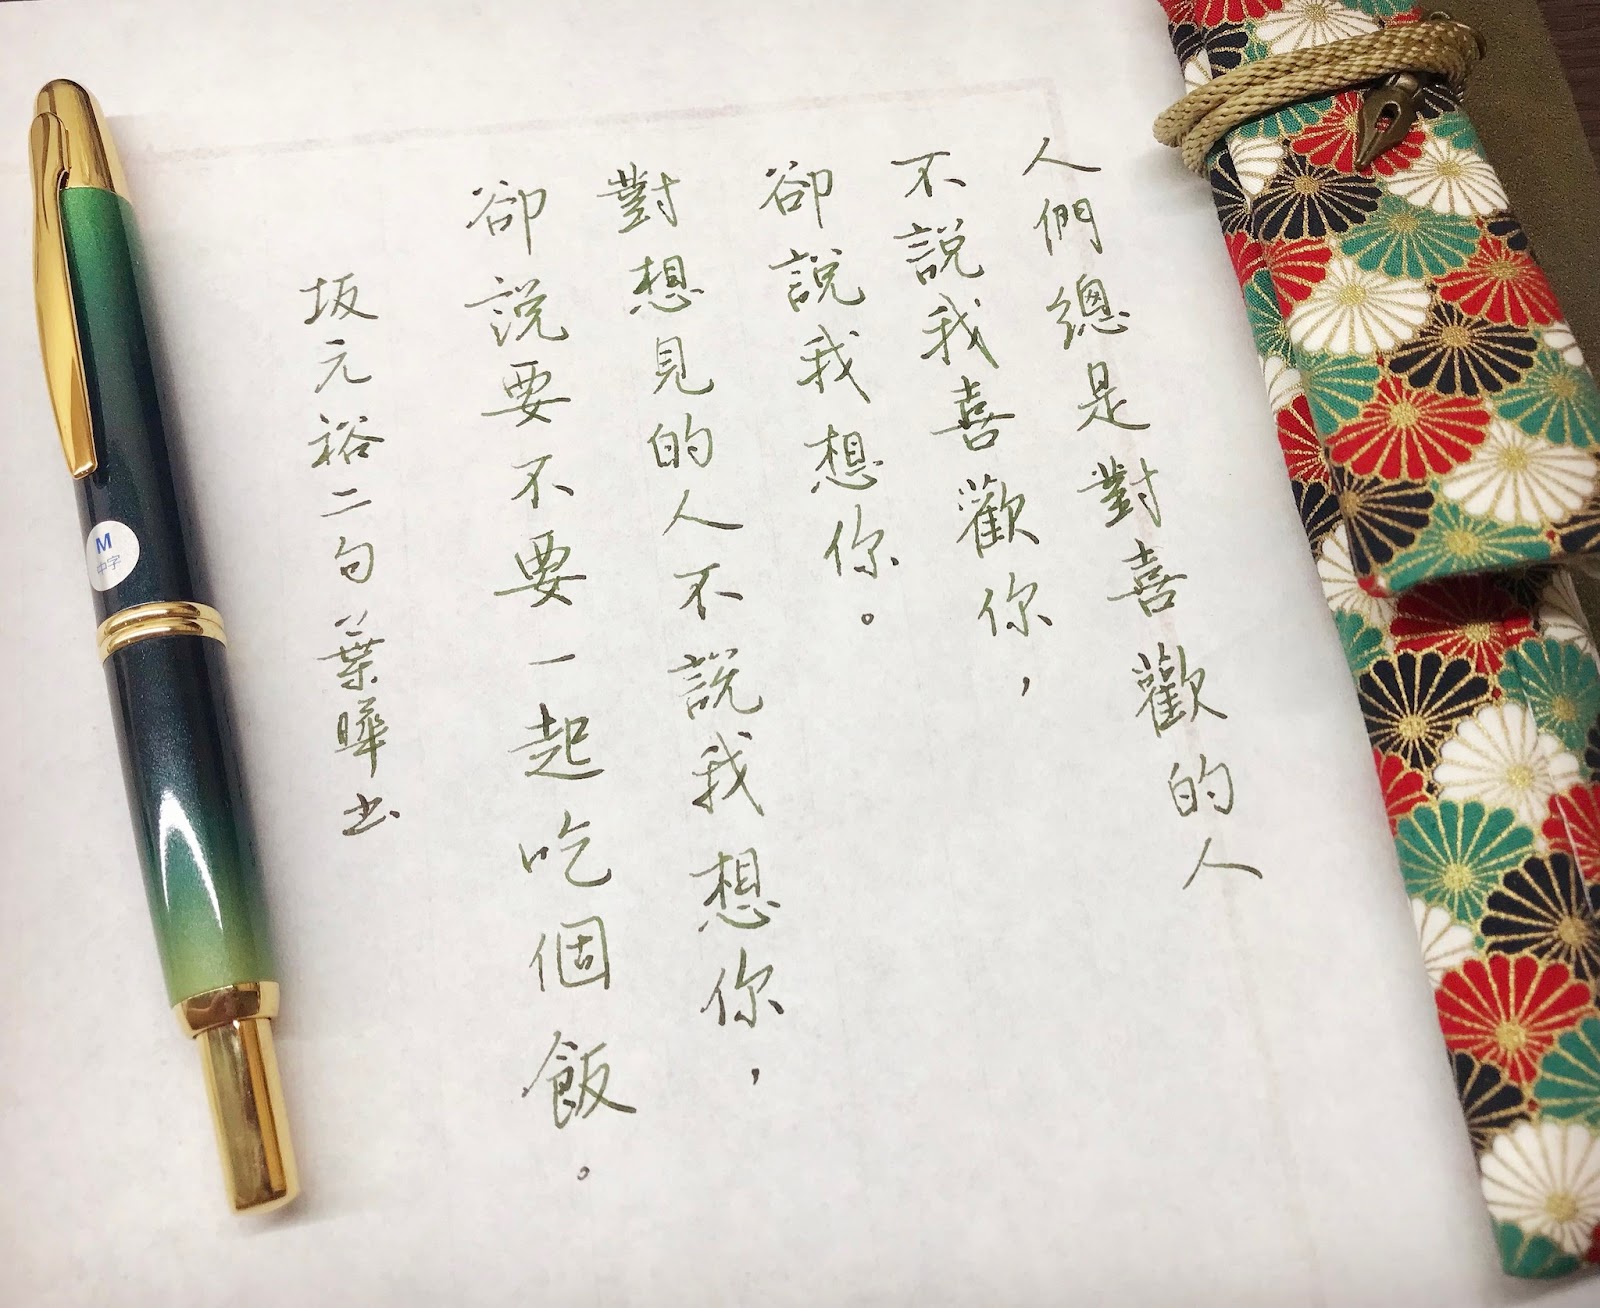 人們總是對喜歡的人
不說我喜歡你，
卻說我想你。
對想見的人不說我想你，
卻說要不要一起吃個飯。
坂元裕二句 葉曄書
M
中字